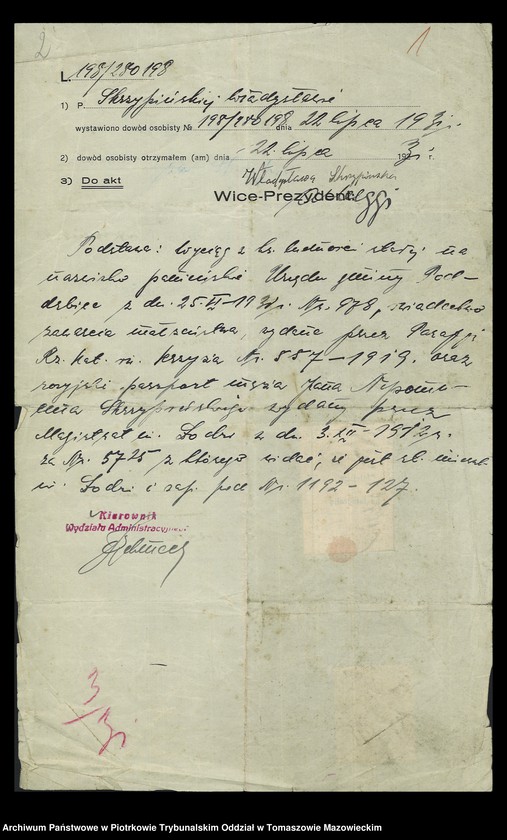 2
1
L. 198/280198
1) P. Skrzypińskiej Władysławie
wystawiono dowód osobisty № 198/280198 dnia 22 lipca 1931 r.
2) dowód osobisty otrzymałem (am) dnia 22 lipca 1931 r.
Władysława Skrzypińska
3) Do akt
Wice-Prezydent:
Podstawa: wyciąg z ks. ludności stałej na
nazwisko panieńskie Urzędu gminy Pod-
dębice z dn. 25. 193 r. Nr. 878, świadectwo
zawarcia małżeństwa, wydane przez Parafję
Rz. kat. Krzyża Nr. 557-1919. oraz
rosyjski paszport męża Jana Nepomu-
cena wydany przez
Magistrat m. Łodzi z dn. 3. XII-1912 r.
za Nr. 5725 z którego widać, że jest st. mieszk.
m. Łodzi i zap. pod Nr. 1192-127.
Kierownik
Wydziału Administracyjnego
3
31
Archiwum Państwowe w Piotrkowie Trybunalskim Oddział w Tomaszowie Mazowieckim